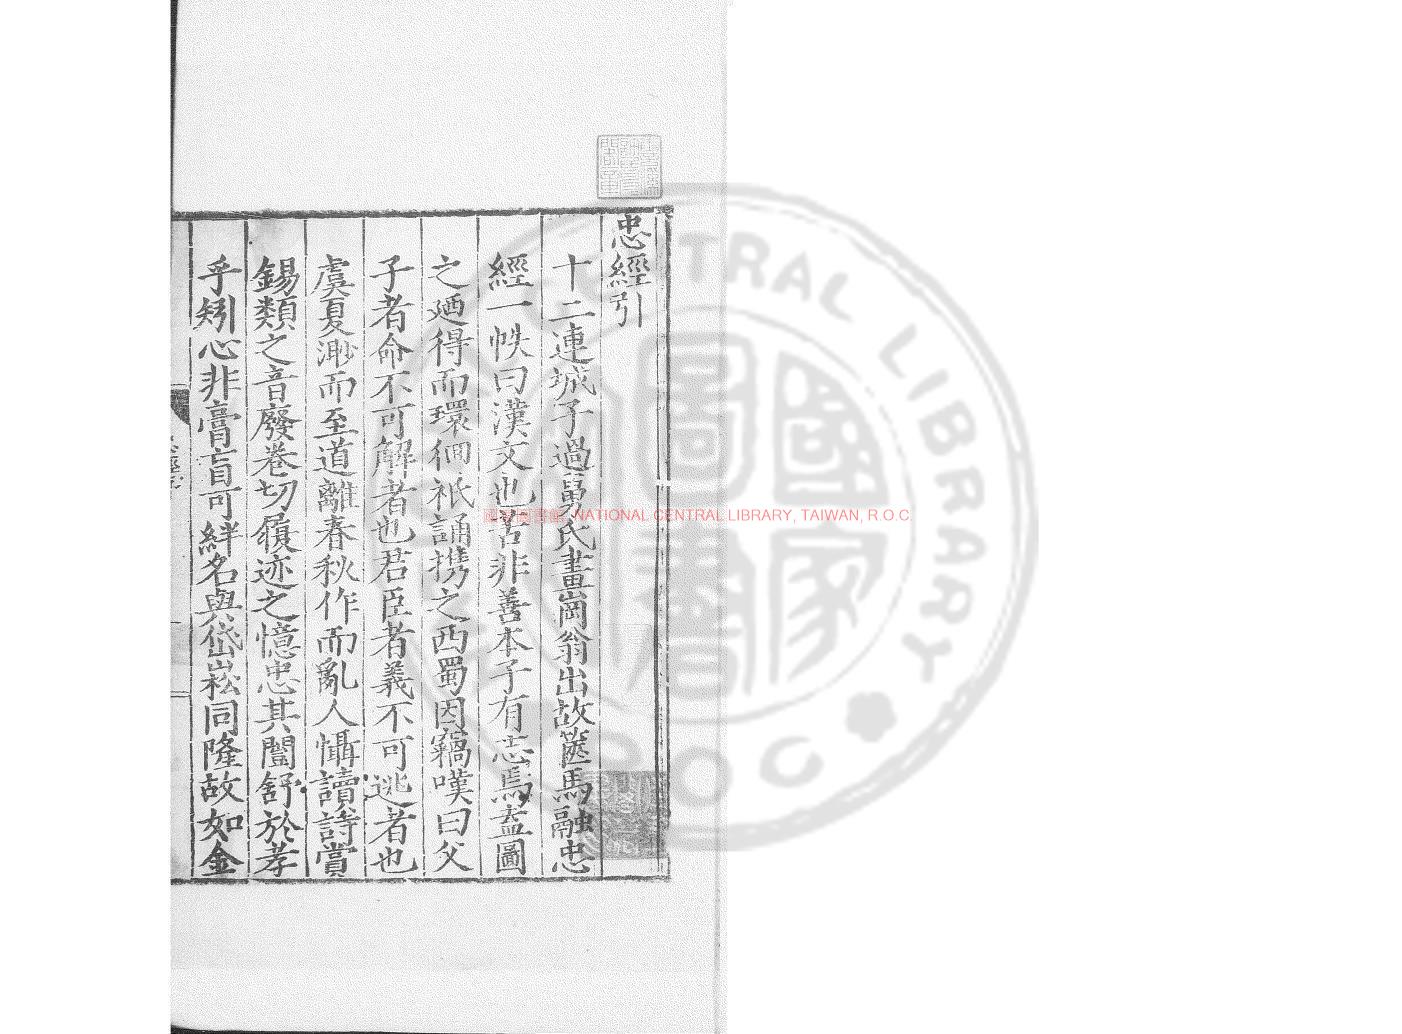 忠經引
十二連城子過舅氏畫岡翁出故篋馬融忠
經一帙曰漢文也苦非善本子有志焉盍圖
之廼得而環徊祇誦携之西蜀因竊嘆曰父
子者命不可解者也君臣者義不可逃者也
虞夏渺而至道離春秋作而亂人懾讀詩賞
錫類之音廢卷切履迹之憶忠其闓舒於孝
乎矧心非膏肓可絆名與岱崧同隆故如金
國家圖書館, NATIONAL CENTRAL LIBRARY, TAIWAN, R.O.C.
CENTRAL LIBRARY
ROC
國家圖書